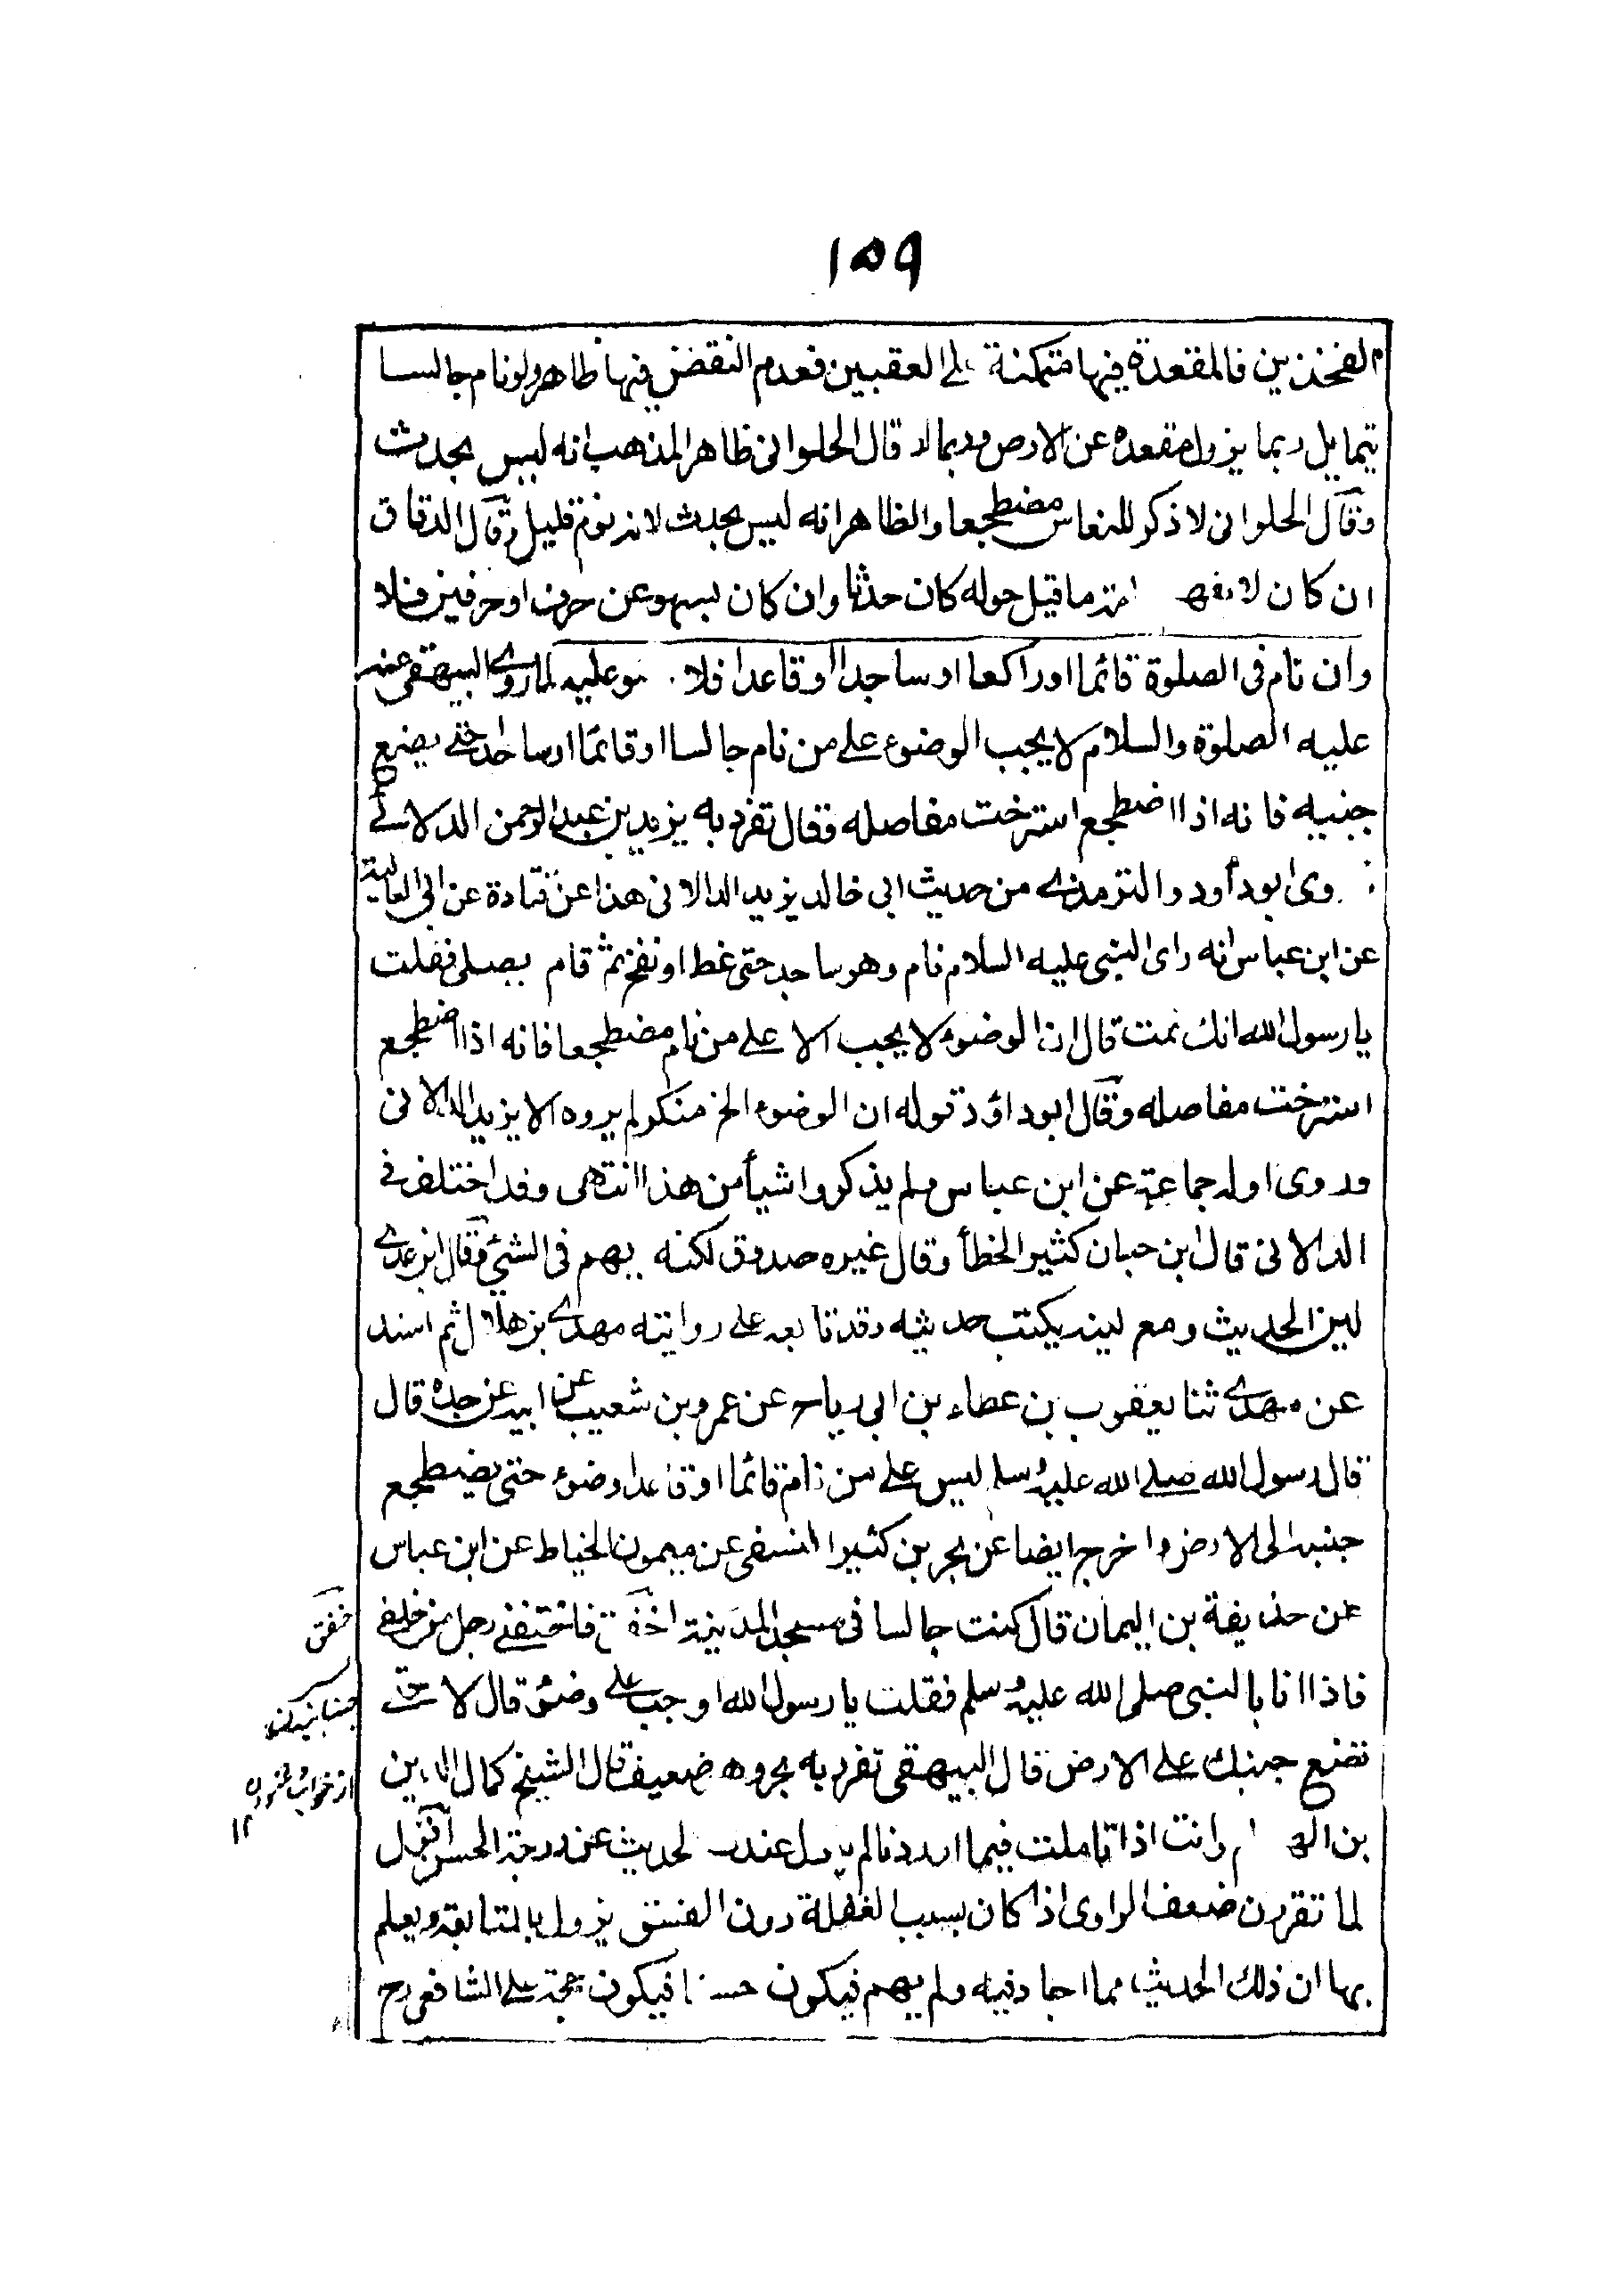 ١٥٩
الفخذين فالمقعدة فيها متمكنة على العقبين فعدم النقض فيها ظاهر ولو نام جالسا
يتمايل ربما يزول مقعده عن الارض وربما لا قال الحلواني ظاهر المذهب انه ليس بحدث
وقال الحلواني لا ذكر للنعاس مضطجعا والظاهر انه ليس بحدث لانه نوم قليل وقال الدقاق
ان كان لا يفهم عامة ما قيل حوله كان حدثا وان كان يسهو عن حرف او حرفين فلا
وان نام في الصلوة قائما او راكعا او ساجدا او قاعدا فلا وضوء عليه لما روى البيهقي عنه
عليه الصلوة والسلام لا يجب الوضوء على من نام جالسا او قائما او ساجدا حتى يضع
جنبيه فانه اذا اضطجع استرخت مفاصله وقال تفرد به يزيد بن عبد الرحمن الدالاني
وروى ابو داود والترمذي من حديث ابي خالد يزيد الدالاني هذا عن قتادة عن ابي العالية
عن ابن عباس انه راى النبي عليه السلام نام وهو ساجد حتى غط او نفخ ثم قام يصلي فقلت
يا رسول الله انك نمت قال ان الوضوء لا يجب الا على من نام مضطجعا فانه اذا اضطجع
استرخت مفاصله وقال ابو داؤد قوله ان الوضوء الخ منكر لم يروه الا يزيد الدالاني
وروى اوله جماعة عن ابن عباس ولم يذكروا شيأ من هذا انتهى وقد اختلف في
الدالاني قال ابن حبان كثير الخطأ وقال غيره صدوق لكنه يهم في الشئ وقال ابن عدي
لين الحديث ومع لينه يكتب حديثه وقد تابعه على روايته مهدي بن هلال ثم اسند
عن مهدي ثنا يعقوب بن عطاء بن ابي رباح عن عمرو بن شعيب عن ابيه عن جده قال
قال رسول الله صلى الله عليه وسلم ليس على من نام قائما او قاعدا وضوء حتى يضطجع
جنبه الى الارض واخرج ايضا عن بحر بن كثير السقي عن ميمون الخياط عن ابن عباس
عن حذيفة بن اليمان قال كنت جالسا في مسجد المدينة اخفق فاحتضنني رجل من خلفي
فاذا انا بالنبي صلى الله عليه وسلم فقلت يا رسول الله اوجب على وضوء قال لا حتى
تضع جنبك على الارض قال البيهقي تفرد به بحر وهو ضعيف قال الشيخ كمال الدين
بن الهمام وانت اذا تاملت فيما اوردنا لم ينزل عندك الحديث عن درجة الحسن اقول
لما تقرر ان ضعف الراوي اذا كان بسبب الغفلة دون الفسق يزول بالمتابعة ويعلم
بها ان ذلك الحديث مما اجاد فيه ولم يهم فيكون حسنا فيكون حجة على الشافعي رح
خفق
جنبانيدن
از خواب
١٢